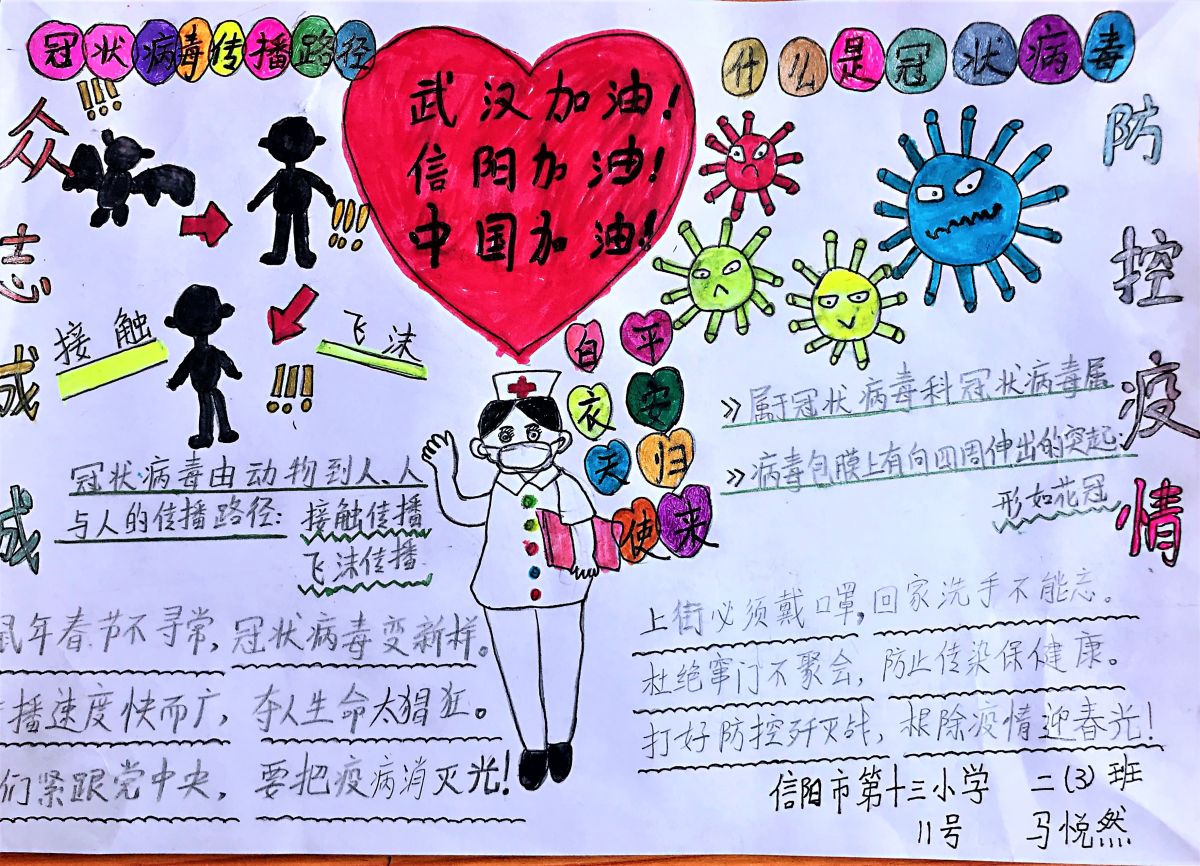 冠状病毒传播路径
什么是冠状病毒
武汉加油！
信阳加油！
中国加油！
众志成成
防控疫情
!!!
!!!
!!!
接触
飞沫
白衣天使
平安归来
冠状病毒由动物到人、人
与人的传播路径：接触传播
飞沫传播
»属于冠状病毒科冠状病毒属
»病毒包膜上有向四周伸出的突起；
形如花冠
鼠年春节不寻常，冠状病毒变新样。
播速度快而广，夺人生命太猖狂。
们紧跟党中央，要把疫病消灭光！
上街必须戴口罩，回家洗手不能忘。
杜绝窜门不聚会，防止传染保健康。
打好防控歼灭战，根除疫情迎春光！
信阳市第十三小学 二(3)班
11号 马悦然